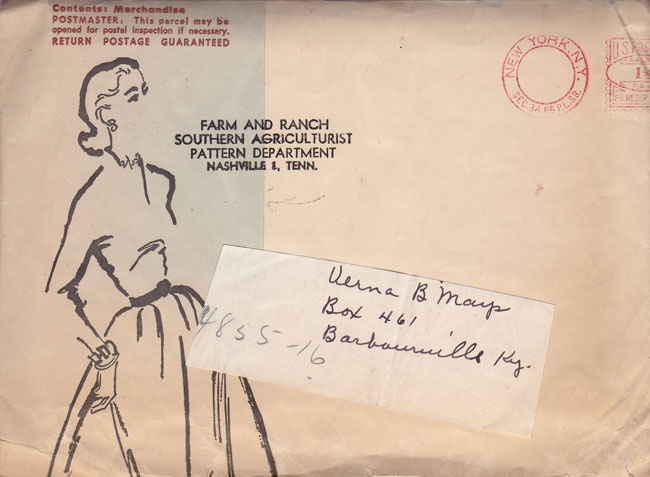 Contents: Merchandise
POSTMASTER: This parcel may be
opened for postal inspection if necessary.
RETURN POSTAGE GUARANTEED
NEW YORK, N.Y.
SEC. 34.66 P.L.&R.
U.S. POS
FARM AND RANCH
SOUTHERN AGRICULTURIST
PATTERN DEPARTMENT
NASHVILLE 1, TENN.
Verna B Mays
Box 461
Barbourville Ky.
4835-16